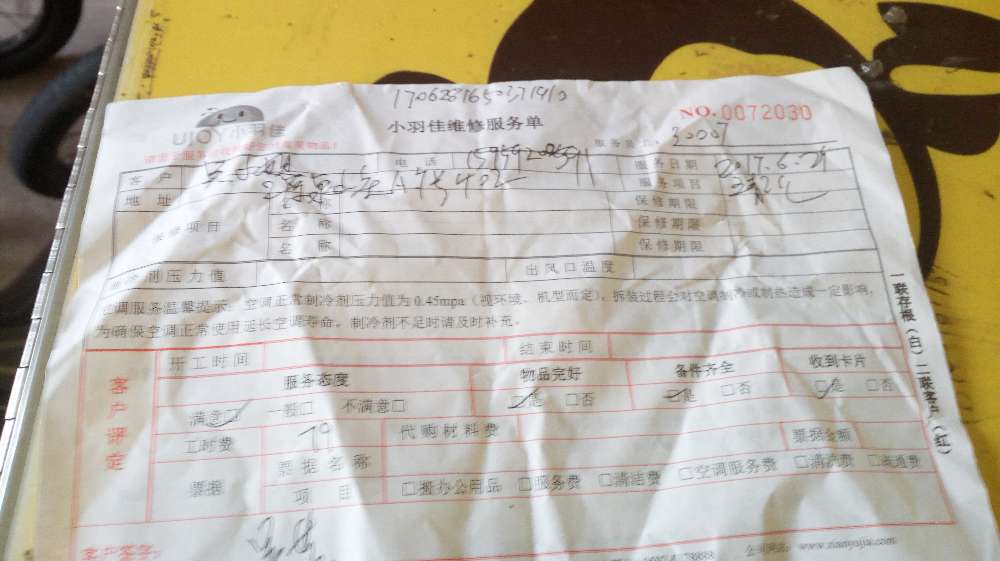 小羽佳维修服务单
NO.0072030
UIOY小羽佳
30007
客户 电话 服务日期 2017.6.29
地址 A 402 服务项目 清洗
名称 保修期限
保修项目 名称 保修期限
名称 保修期限
制压力值 出风口温度
空调服务温馨提示:空调正常制冷剂压力值为0.45mpa(视环境、机型而定),拆装过程会对空调制冷或制热造成一定影响,
为确保空调正常使用延长空调寿命。制冷剂不足时请及时补充。
一联存根(白)二联客户(红)
客户评定
开工时间 结束时间
服务态度 物品完好 备件齐全 收到卡片
满意□ 一般□ 不满意□ □是 □否 □是 □否 □是 □否
工时费 79 代购材料费 票据金额
票据 票据名称
项目 □搬办公用品 □服务费 □清洁费 □空调服务费 □清洗费 □疏通费
客户签字:
www.xianyujia.com